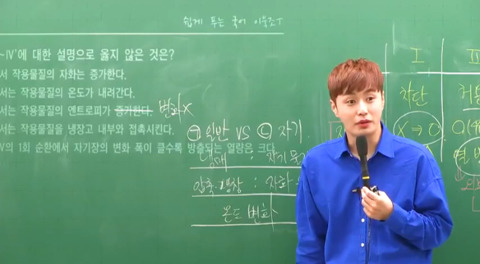 쉽게 푸는 국어 이
~Ⅳ'에 대한 설명으로 옳지 않은 것은?
서 작용물질의 자화는 증가한다.
서는 작용물질의 온도가 내려간다.
서는 작용물질의 엔트로피가 증가한다. 변화X
서는 작용물질을 냉장고 내부와 접촉시킨다.
Ⅳ의 1회 순환에서 자기장의 변화 폭이 클수록 방출되는 열량은 크다.
㉠ 일반 VS ㉡ 자기
냉매 자기 물
압축 팽창 : 자화
온도 변화
Ⅰ Ⅱ
차단
X → 0